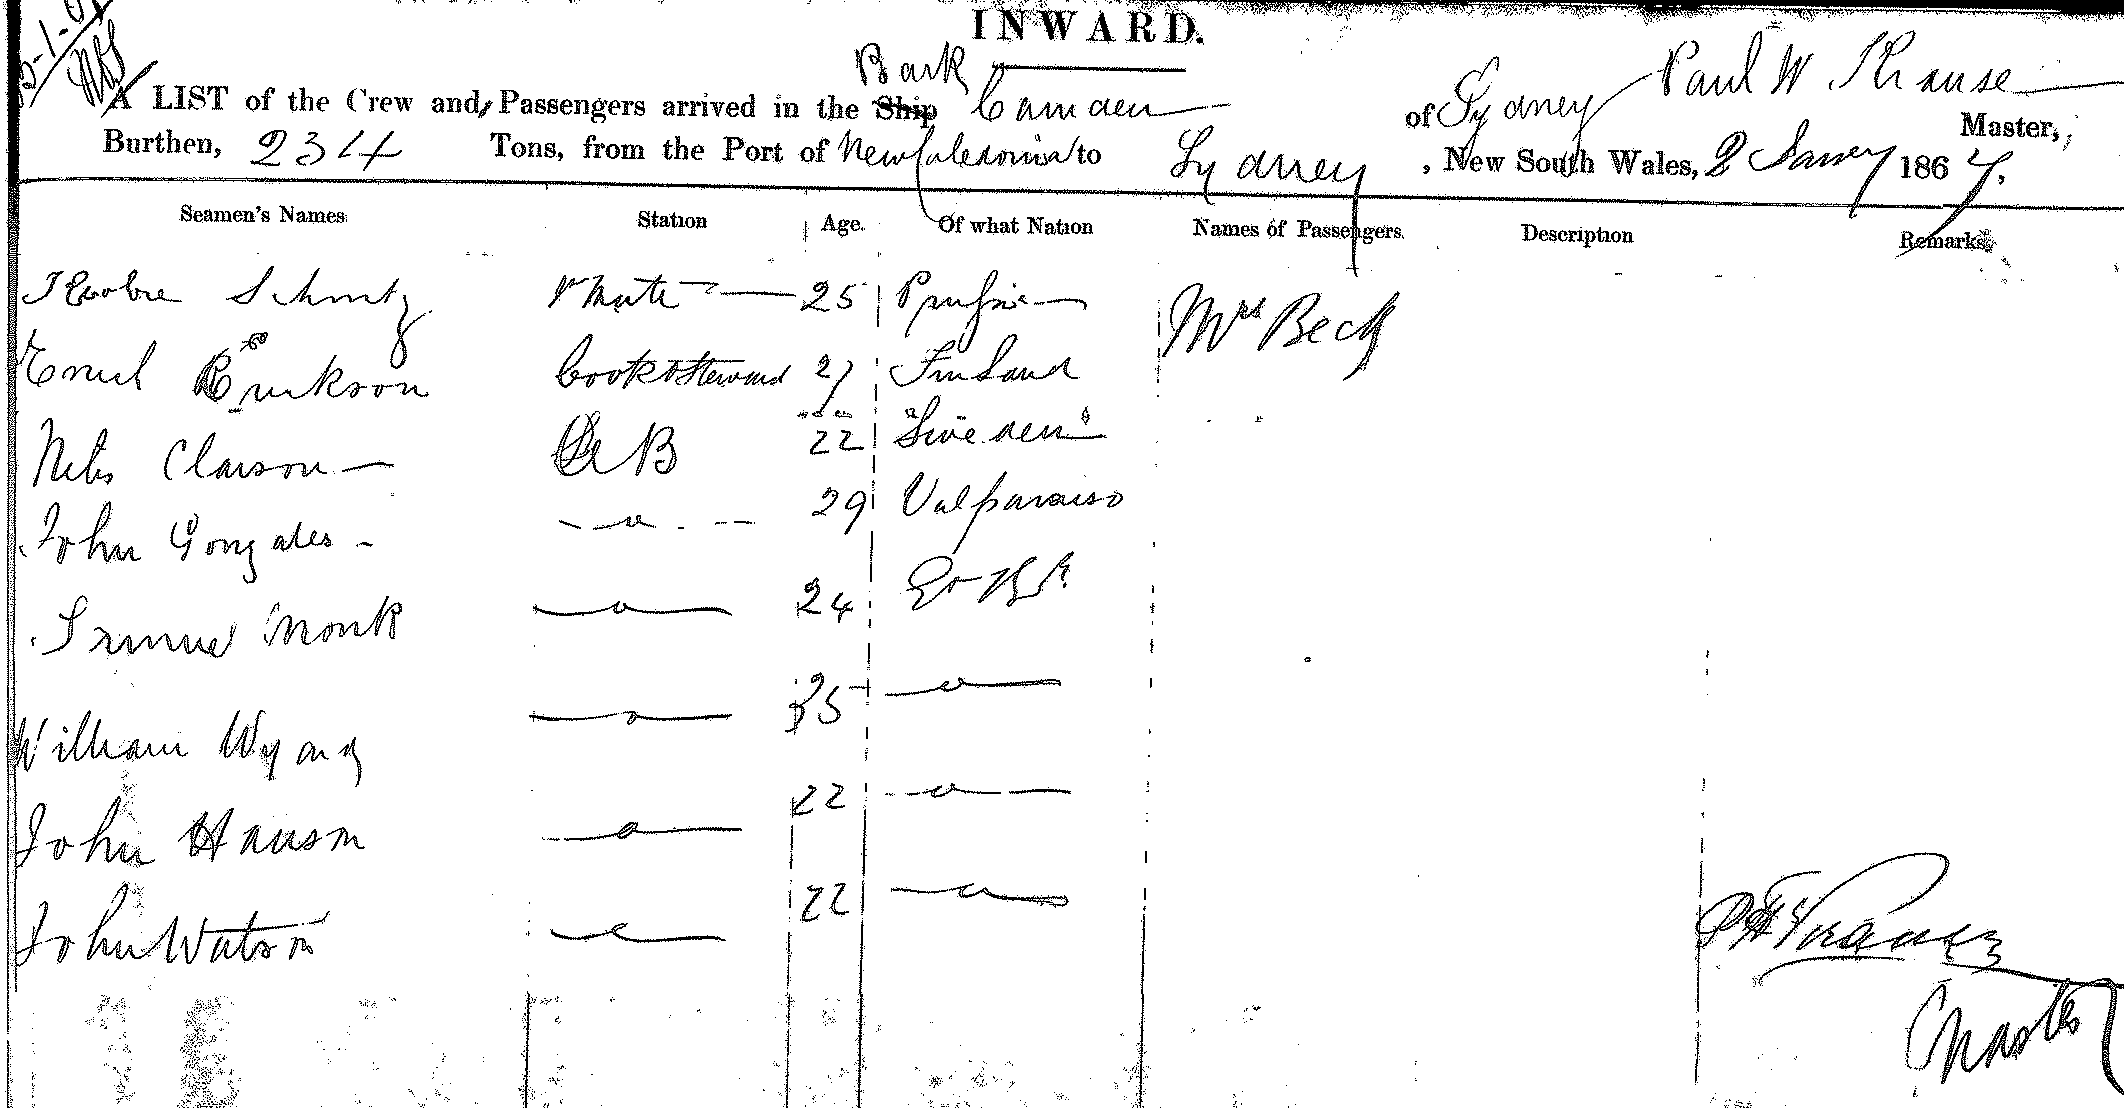 INWARD.
Bark
A LIST of the Crew and Passengers arrived in the Ship Camden of Sydney Paul W Krause Master,
Burthen, 234 Tons, from the Port of New Caledonia to Sydney, New South Wales, 2 1867.
Seamen's Names Station Age. Of what Nation Names of Passengers. Description Remarks.
Schmitz Mate 25 Prussia Mrs Beck
Erikson Cook & Steward 27 Finland
Nils Clauson A B 22 Sweden
John Gonzales 29 Valparaiso
Samuel Monk 24
William Wyand 25
John Hanson 22
John Watson 22
Master